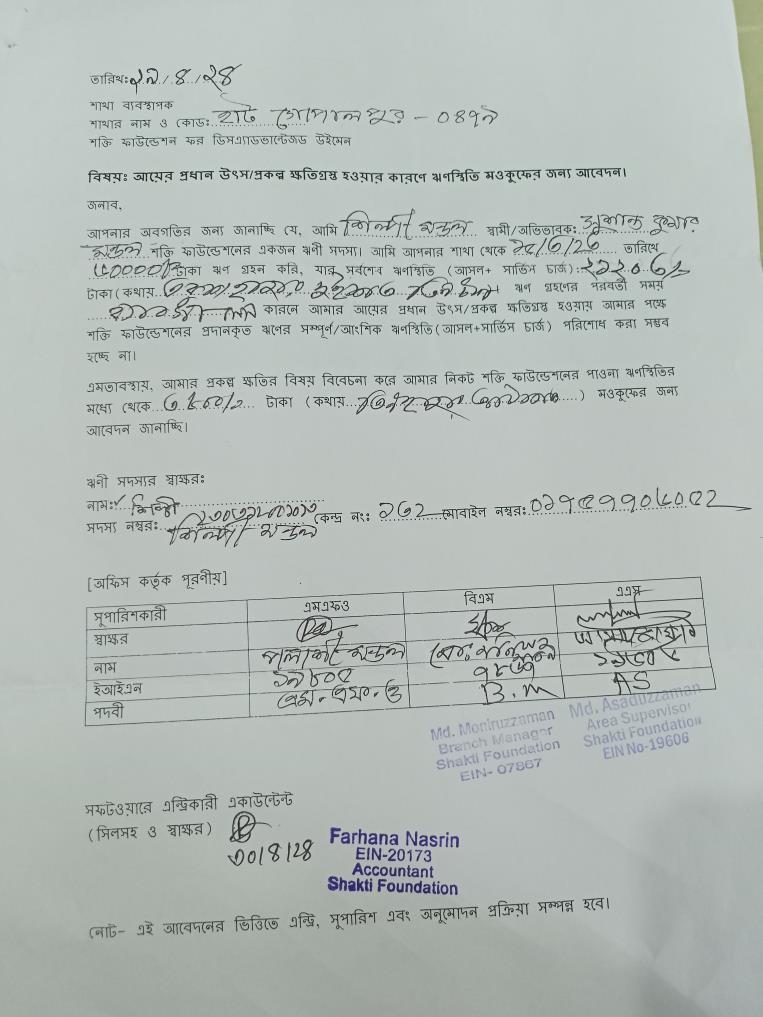 তারিখঃ ২৯/৪/২৪
শাখা ব্যবস্থাপক
শাখার নাম ও কোডঃ হাট গোপালপুর - ০৪৭৯
শক্তি ফাউন্ডেশন ফর ডিসএ্যাডভান্টেজড উইমেন
বিষয়ঃ আয়ের প্রধান উৎস/প্রকল্প ক্ষতিগ্রস্ত হওয়ার কারণে ঋণস্থিতি মওকুফের জন্য আবেদন।
জনাব,
আপনার অবগতির জন্য জানাচ্ছি যে, আমি শিল্পী মন্ডল স্বামী/অভিভাবকঃ সুশান্ত কুমার
মন্ডল শক্তি ফাউন্ডেশনের একজন ঋণী সদস্য। আমি আপনার শাখা থেকে তারিখে
৫০০০০/ টাকা ঋণ গ্রহন করি, যার সর্বশেষ ঋণস্থিতি (আসল+ সার্ভিস চার্জ)
টাকা (কথায় ঋণ গ্রহণের পরবর্তী সময়
কারনে আমার আয়ের প্রধান উৎস/প্রকল্প ক্ষতিগ্রস্ত হওয়ায় আমার পক্ষে
শক্তি ফাউন্ডেশনের প্রদানকৃত ঋণের সম্পূর্ণ/আংশিক ঋণস্থিতি (আসল+সার্ভিস চার্জ) পরিশোধ করা সম্ভব
হচ্ছে না।
এমতাবস্থায়, আমার প্রকল্প ক্ষতির বিষয় বিবেচনা করে আমার নিকট শক্তি ফাউন্ডেশনের পাওনা ঋণস্থিতির
মধ্যে থেকে টাকা (কথায় ) মওকুফের জন্য
আবেদন জানাচ্ছি।
ঋণী সদস্যর স্বাক্ষরঃ
নামঃ শিল্পী
সদস্য নম্বরঃ শিল্পী মন্ডল কেন্দ্র নংঃ মোবাইল নম্বরঃ
[অফিস কর্তৃক পূরণীয়]
সুপারিশকারী এমএফও বিএম এএস
স্বাক্ষর
নাম পলাশ মন্ডল মোঃ মনিরুজ্জামান আসাদুজ্জামান
ইআইএন
পদবী এম.এফ.ও B.M AS
Md. Moniruzzaman
Branch Manager
Shakti Foundation
EIN- 07867
Md. Asaduzzaman
Area Supervisor
Shakti Foundation
EIN No-19606
সফটওয়ারে এন্ট্রিকারী একাউন্টেন্ট
(সিলসহ ও স্বাক্ষর)
৩০/৪/২৪
Farhana Nasrin
EIN-20173
Accountant
Shakti Foundation
নোট- এই আবেদনের ভিত্তিতে এন্ট্রি, সুপারিশ এবং অনুমোদন প্রক্রিয়া সম্পন্ন হবে।